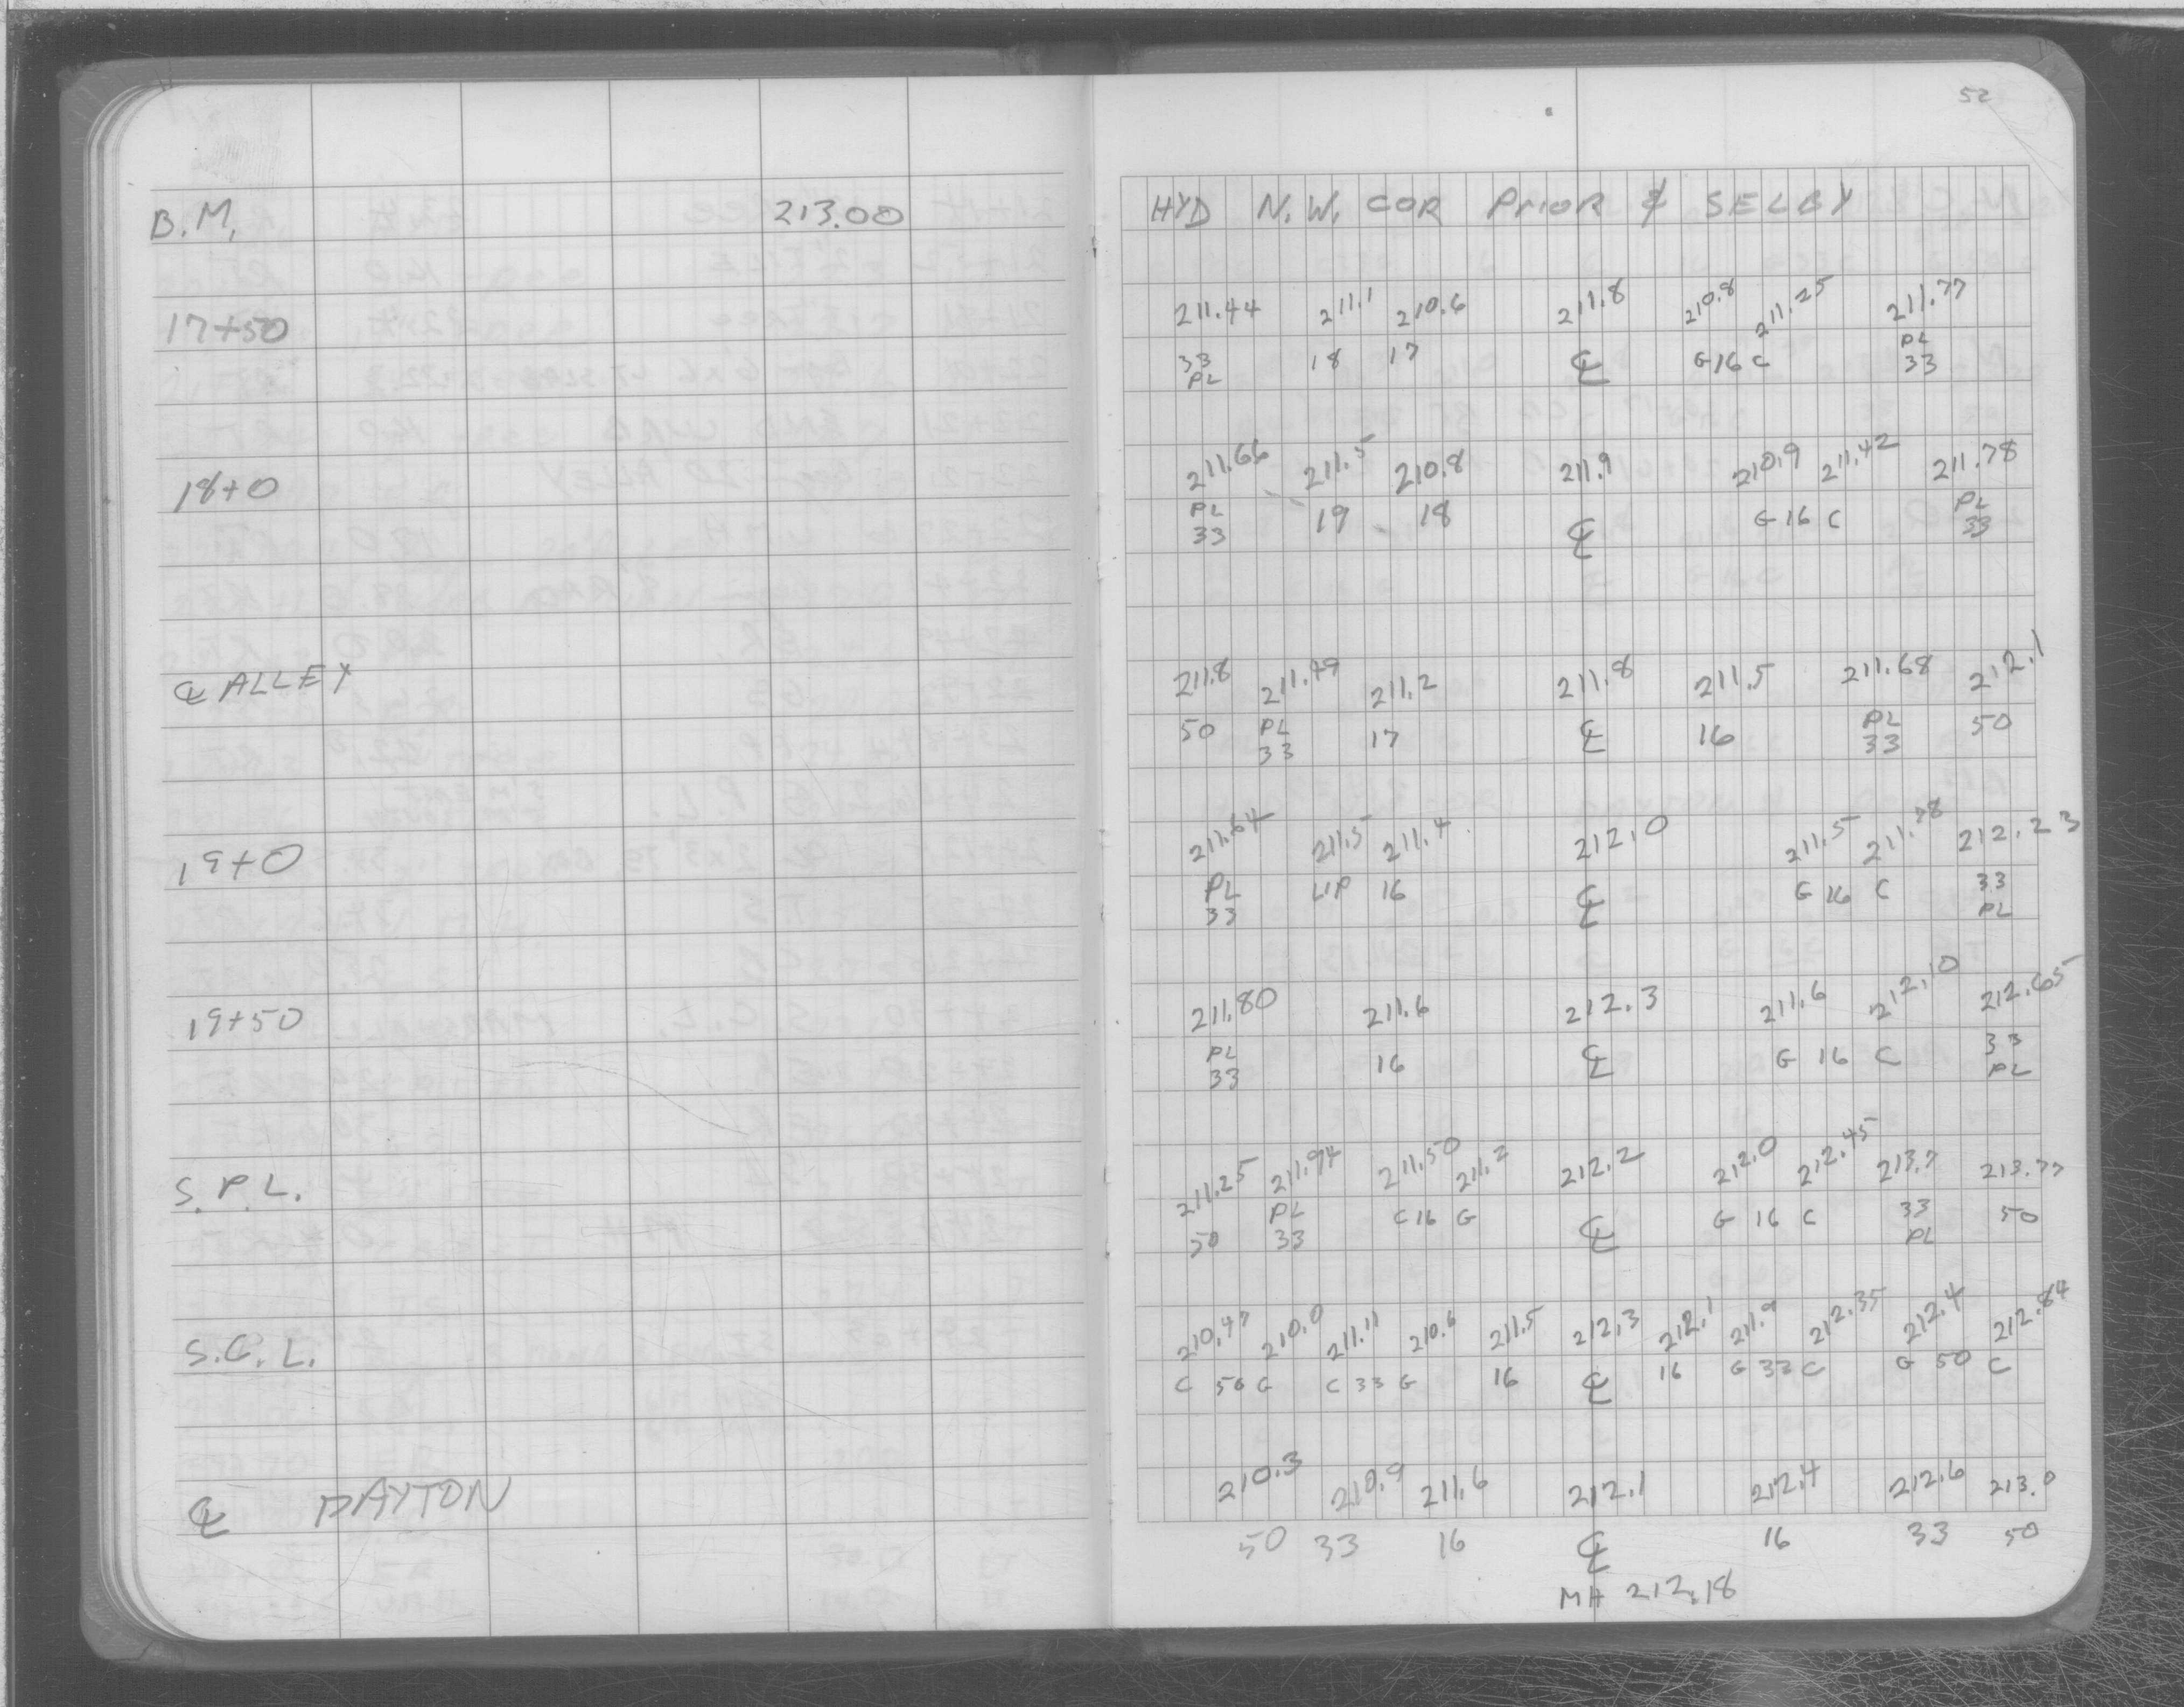 52
B.M. 213.00 HYD N.W. COR PRIOR & SELBY
17+50 211.44 211.1 210.6 211.8 210.8 211.25 211.77
33 18 17 ℄ G 16 C PL
PL 33
18+0 211.66 211.5 210.8 211.9 210.9 211.42 211.78
PL 19 18 ℄ G 16 C PL
33 33
℄ ALLEY 211.8 211.49 211.2 211.8 211.5 211.68 212.1
50 PL 17 ℄ 16 PL 50
33 33
19+0 211.64 211.5 211.4 212.0 211.5 211.78 212.23
PL LIP 16 ℄ G 16 C 33
33 PL
19+50 211.80 211.6 212.3 211.6 212.10 212.65
PL 16 ℄ G 16 C 33
33 PL
S.P.L. 211.25 211.94 211.50 211.2 212.2 212.0 212.45 213.7 213.77
PL C 16 G ℄ G 16 C 33 50
50 33 PL
S.C.L. 210.47 210.0 211.11 210.6 211.5 212.3 212.1 211.9 212.35 212.4 212.84
C 50 G C 33 G 16 ℄ 16 G 33 C G 50 C
℄ DAYTON 210.3 210.9 211.6 212.1 212.4 212.6 213.0
50 33 16 ℄ 16 33 50
MH 212.18